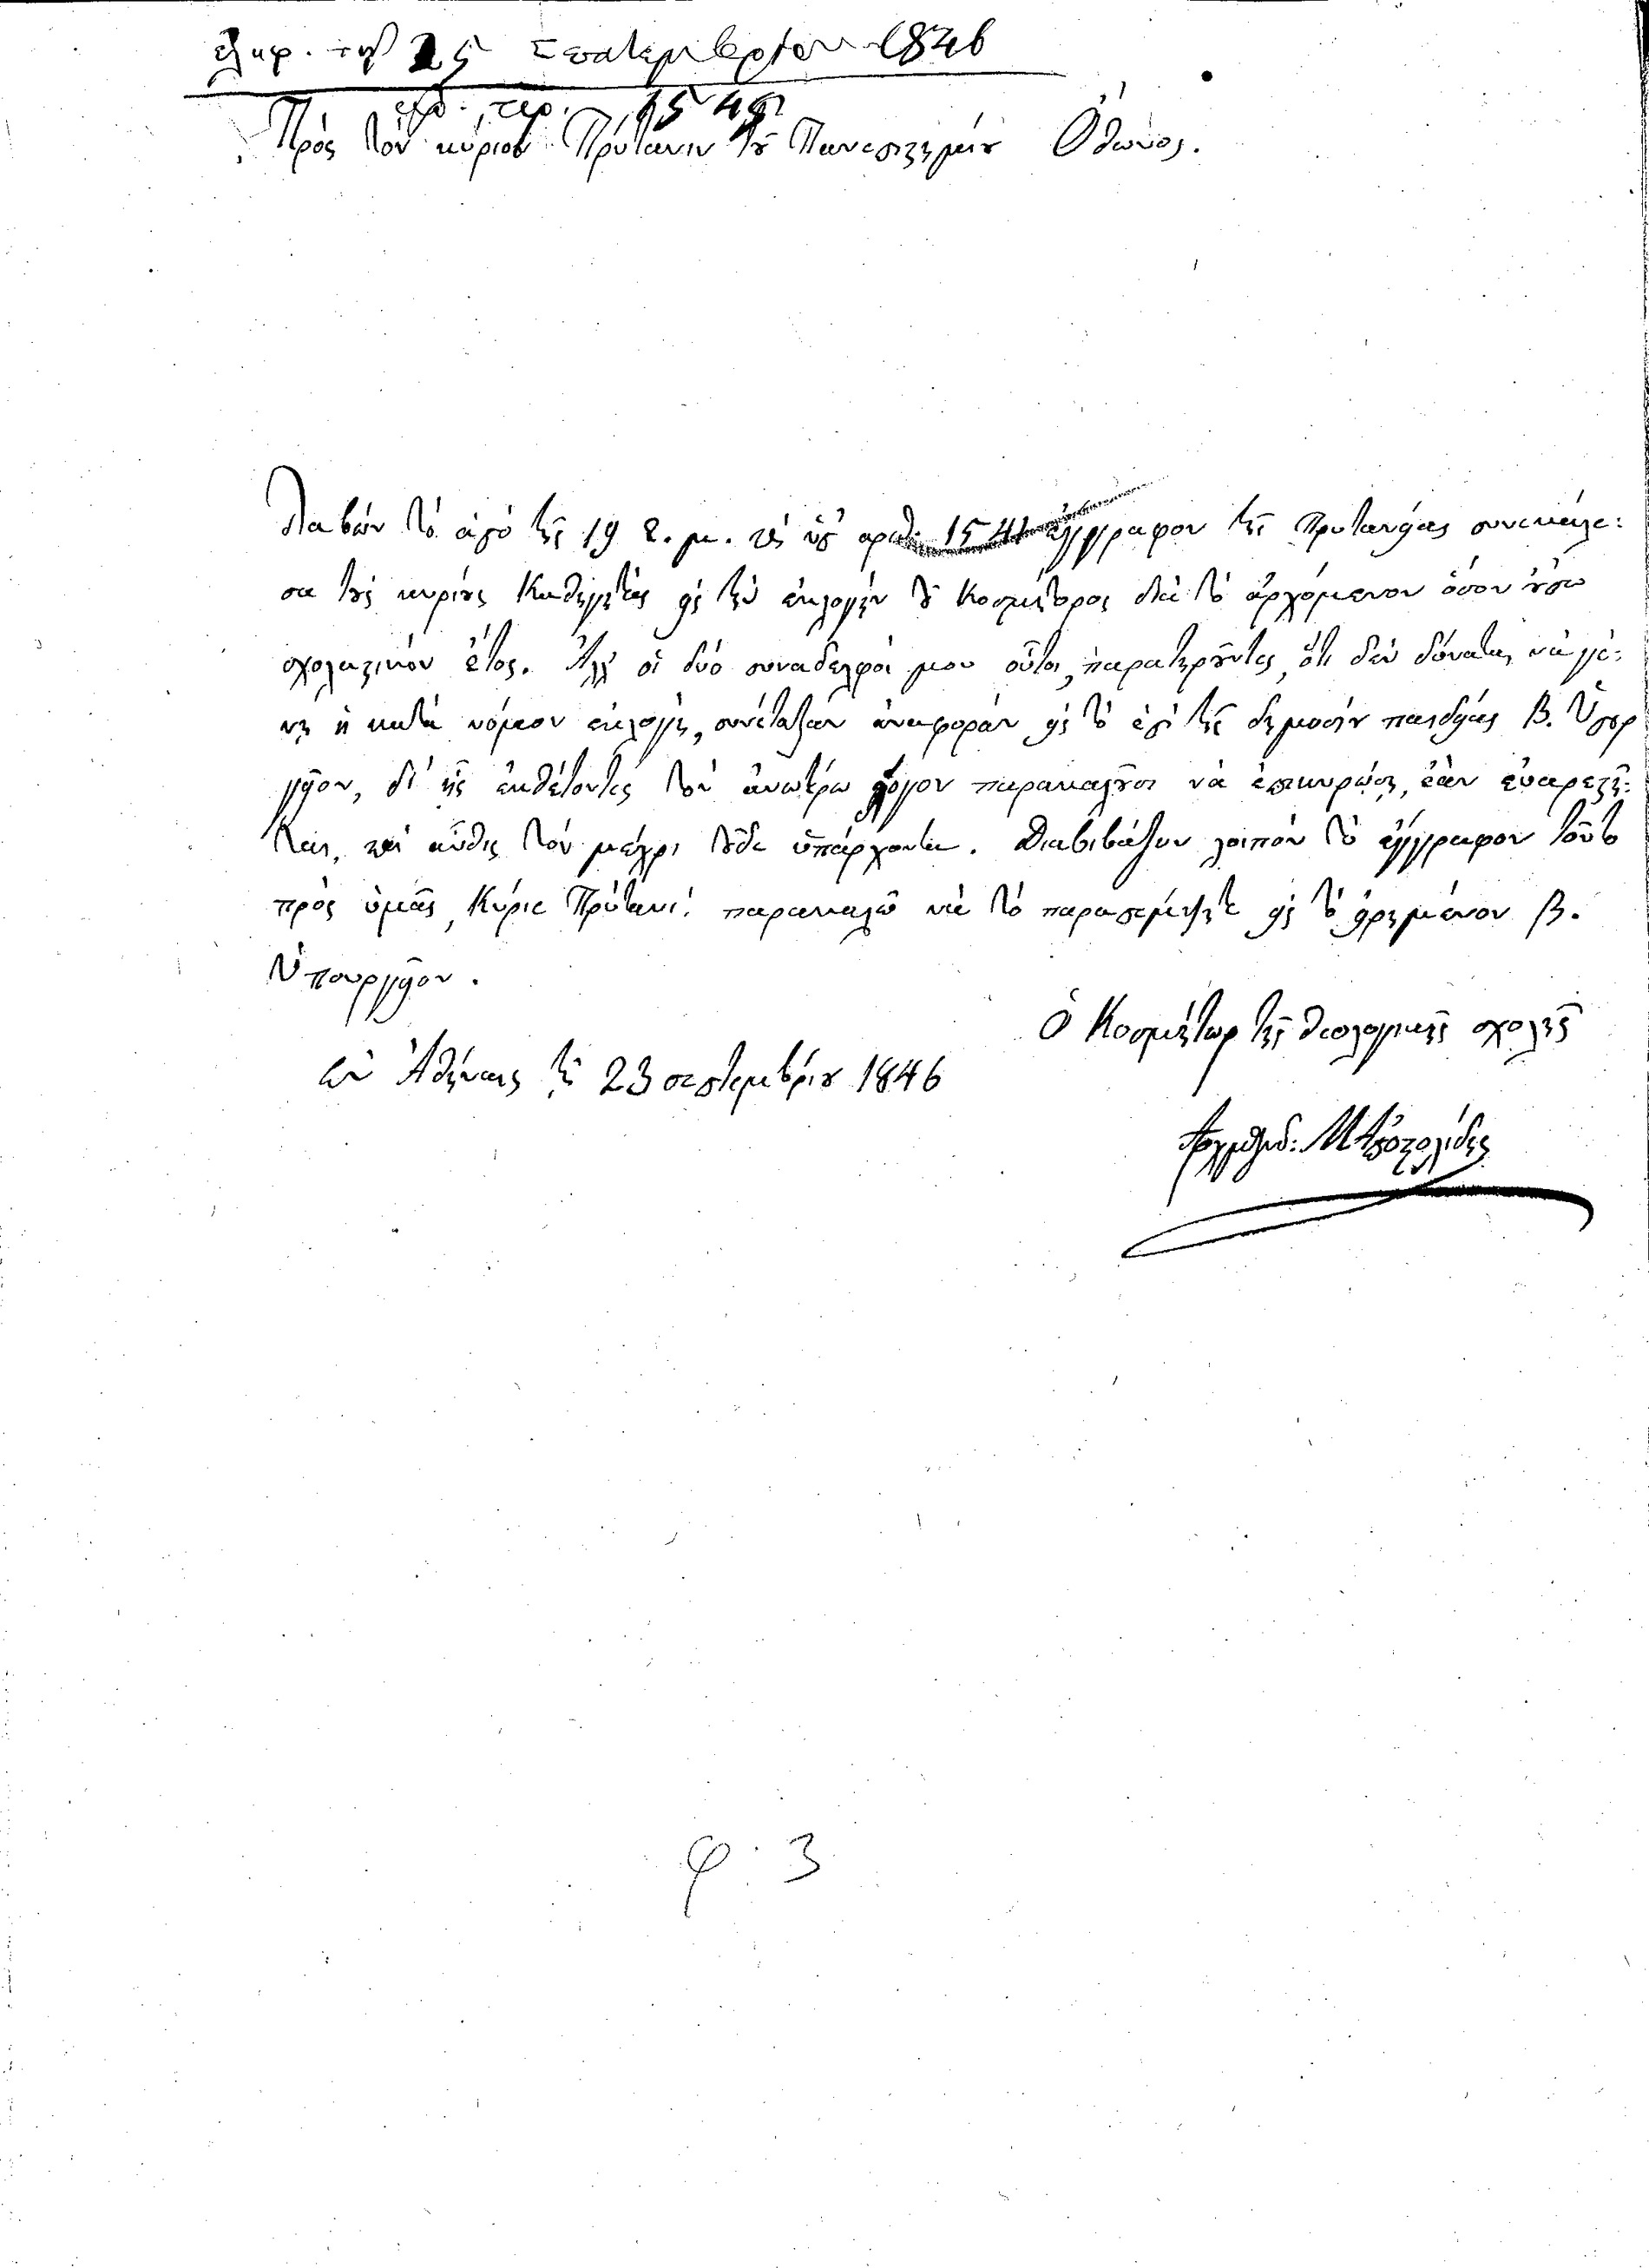 25 Σεπτεμβρίου 1846
1549
Πρὸς τὸν κύριον Πρύτανιν τοῦ Πανεπιστημίου Ὄθωνος.
Λαβὼν τὸ ἀπὸ τῆς 19 ἀριθ. 1541 ἔγγραφον τῆς Πρυτανείας συνεκάλε:
σα τοὺς κυρίους Καθηγητὰς εἰς τὴν ἐκλογὴν τοῦ Κοσμήτορος διὰ τὸ ἀρχόμενον ὅσον οὔπω
σχολαστικὸν ἔτος. Ἀλλ' οἱ δύο συνάδελφοί μου οὗτοι, παρατηροῦντες, ὅτι δὲν δύναται νὰ γέ:
νῃ ἡ κατὰ νόμον ἐκλογὴ, συνέταξαν ἀναφορὰν εἰς τὸ ἐπὶ τῆς δημοσίου παιδείας Β. Ὑπουρ
γεῖον, δι' ἧς ἐκθέτοντες τὸν ἀνωτέρω λόγον παρακαλοῦσι νὰ ἐπικυρώσῃ, ἐὰν εὐαρεστῆ:
ται, καὶ αὖθις τὸν μέχρι τοῦδε ὑπάρχοντα. Διαβιβάζων λοιπὸν τὸ ἔγγραφον τοῦτο
πρὸς ὑμᾶς, Κύριε Πρύτανι! παρακαλῶ νὰ τὸ παραπέμψητε εἰς τὸ εἰρημένον Β.
Ὑπουργεῖον.
Ὁ Κοσμήτωρ τῆς θεολογικῆς σχολῆς
Ἐν Ἀθήναις τῇ 23 σεπτεμβρίου 1846
Μ Ἀποστολίδης
φ. 3